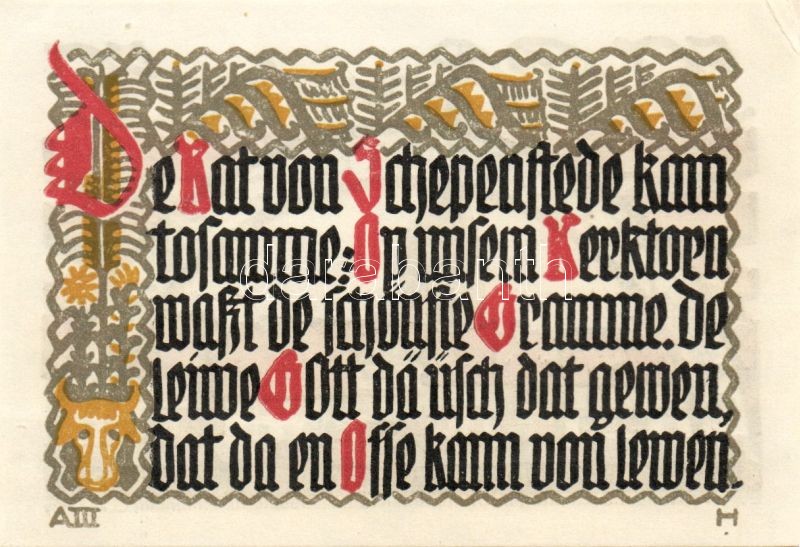 De Rat von Schepenstede kam
tosamme: „In unsem Kerktorn
waßt de schönste Gramme. de
leiwe GOtt dä üsch dat gewen,
dat da en Osse kann von lewen.
A III H
darabanth